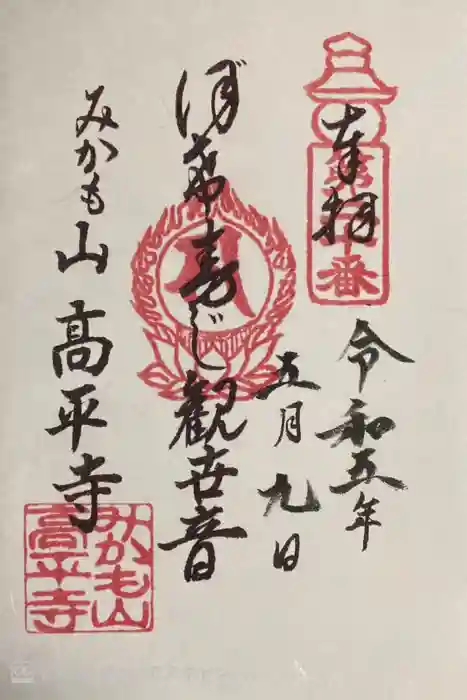 奉拝
第 十番
令和五年
五月九日
ぼけ封じ観世音
みかも山 高平寺
みかも山
高平寺